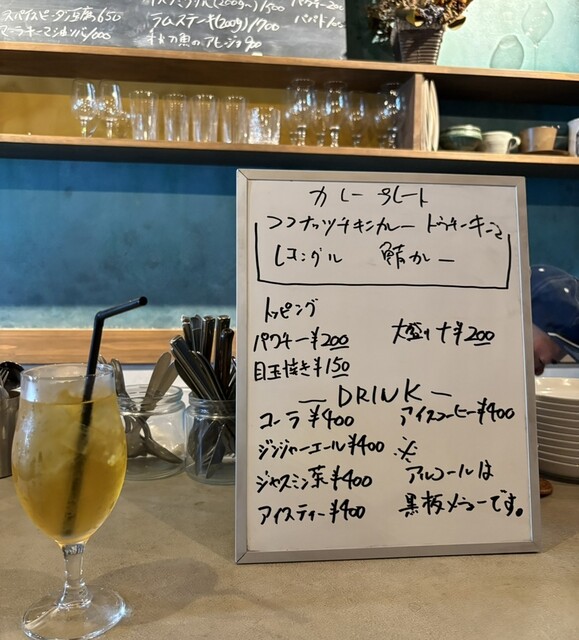 スパイスピータン豆腐 650
ラムステーキ(200g) 1700
秋刀魚のアヒージョ 900
パクチー 200
カレープレート
ココナッツチキンカレー ドゥキーキーマ
レンズダル 鯖カレー
トッピング
パクチー¥200 大盛り+¥200
目玉焼き¥150
― DRINK ―
コーラ ¥400 アイスコーヒー¥400
ジンジャーエール¥400 ※
ジャスミン茶¥400 アルコールは
アイスティー¥400 黒板メニューです。